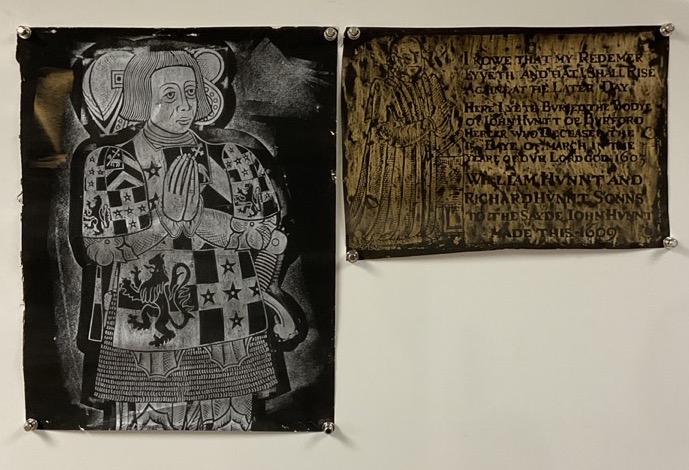 I KOWE THAT MY REDEMER
LYVETH AND THAT I SHALL RISE
AGAINE AT THE LATER DAY
HERE LYETH BURIED THE BODYE
OF IOHN HVNTT OF BVRFORD
MERCER WHO DECEASED THE
DAYE OF MARCH IN THE
YEARE OF OVR LORD GOD 1603
WILLIAM HVNNT AND
RICHARD HVNNT SONNS
TO THE SAYDE IOHN HVNNT
MADE THIS 1609